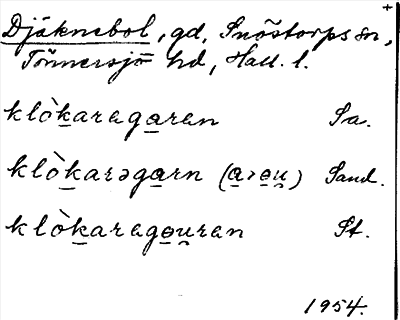 +
Djäknebol, gd, Snöstorps sn,
Tönnersjö hd, Hall. l.
klò̱karaga̱ran Sa.
klò̱karəga̱rn (a̱>o̱u̯) Sand.
klò̱karago̱u̯ran St.
1954.